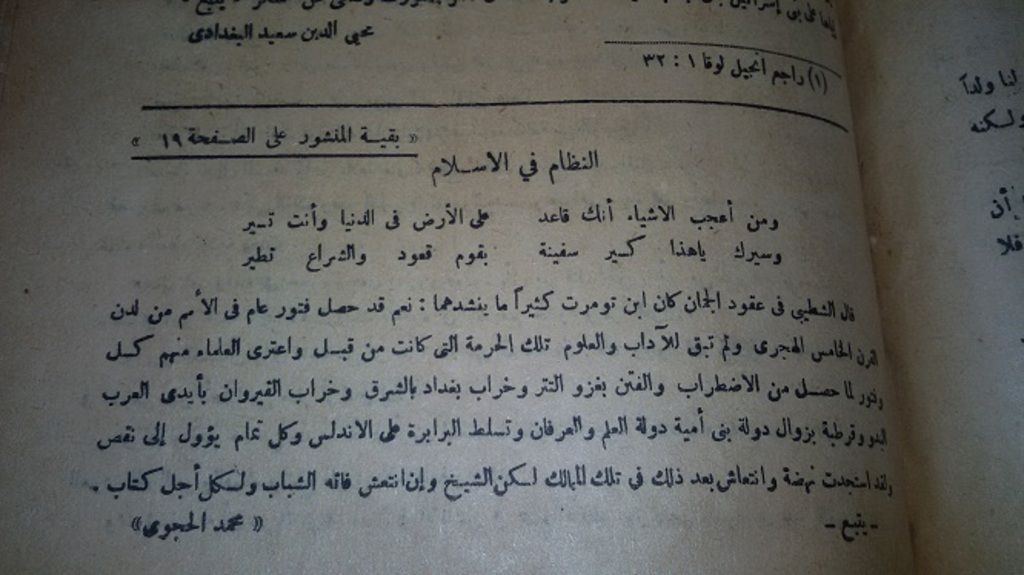 محيي الدين سعيد البغدادى
(١) راجع انجيل لوقا ١ : ٣٢
« بقية المنشور على الصفحة ١٩ »
النظام في الاسلام
ومن أعجب الاشياء أنك قاعد على الأرض فى الدنيا وأنت تسير
وسيرك ياهذا كسير سفينة بقوم قعود والشراع تطير
قال الشطيبى فى عقود الجمان كان ابن تومرت كثيراً ما ينشدهما : نعم قد حصل فتور عام فى الأمم من لدن
القرن الخامس الهجرى ولم تبق للآداب والعلوم تلك الحرمة التى كانت من قبل واعترى العلماء منهم كسل
وفتور لما حصل من الاضطراب والفتن بغزو التتر وخراب بغداد بالشرق وخراب القيروان بأيدى العرب
البدو وقرطبة بزوال دولة بنى أمية دولة العلم والعرفان وتسلط البرابرة على الاندلس وكل تمام يؤول إلى نقص
ولقد استجدت نهضة وانتعاش بعد ذلك في تلك الممالك لكن الشيخ وإن انتعش فاته الشباب ولكل أجل كتاب .
- يتبع -
« محمد الحجوى »
لنا ولداً
ولكنه
أن
فلا